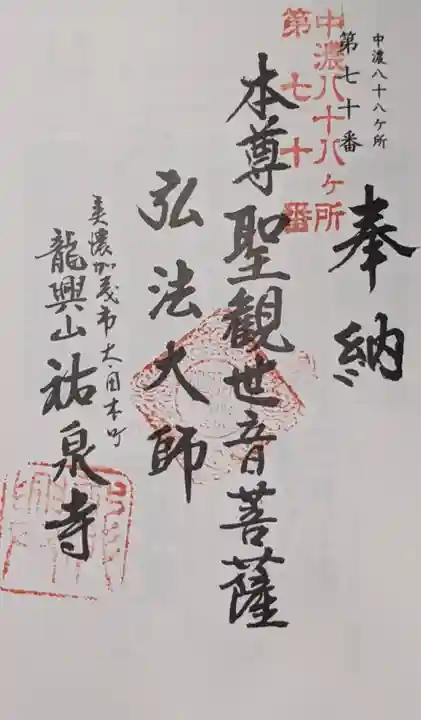 中濃八十八ケ所
第七十番
中濃八十八ヶ所
第七十番
奉納
本尊聖観世音菩薩
弘法大師
美濃加茂市太田本町
龍興山祐泉寺